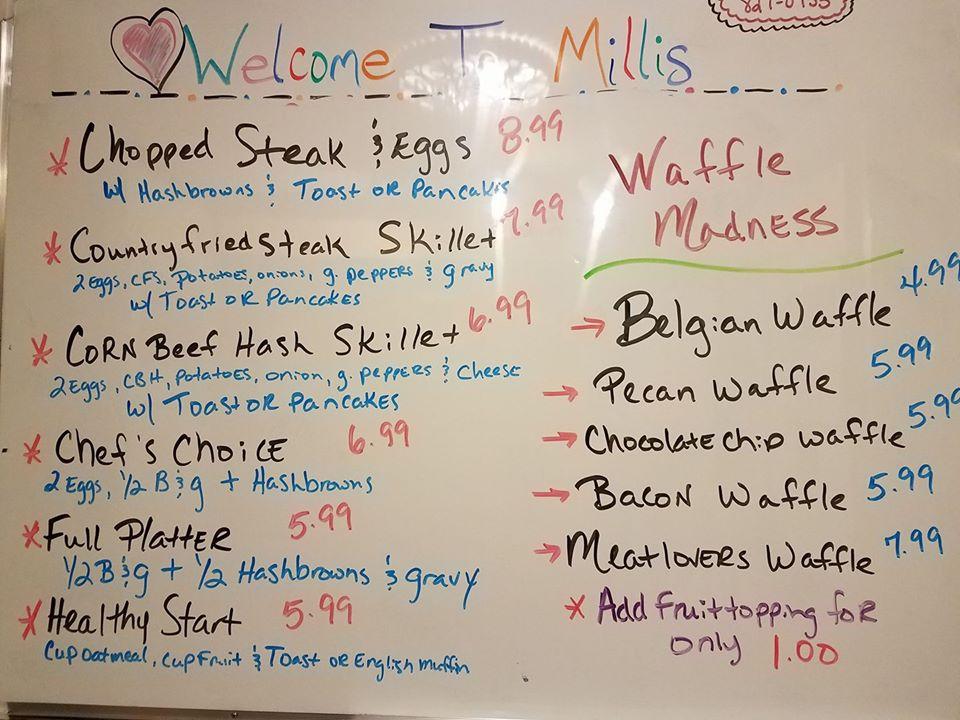 827-0155
Welcome To Millis
* Chopped Steak & Eggs 8.99
w/ Hashbrowns & Toast or Pancakes
* Countryfried Steak Skillet 7.99
2 Eggs, CFS, Potatoes, onions, g. peppers & gravy
w/ Toast OR Pancakes
* CORN Beef Hash Skillet 6.99
2 Eggs, CBH, Potatoes, onion, g. peppers & Cheese
w/ Toast OR Pancakes
* Chef's Choice 6.99
2 Eggs, 1/2 B&g + Hashbrowns
* Full Platter 5.99
1/2 B&g + 1/2 Hashbrowns & gravy
* Healthy Start 5.99
Cup oatmeal, cup Fruit & Toast or English muffin
Waffle
Madness
→ Belgian Waffle 4.99
→ Pecan Waffle 5.99
→ Chocolate chip Waffle 5.99
→ Bacon Waffle 5.99
→ Meatlovers Waffle 7.99
* Add Fruit topping for
only 1.00